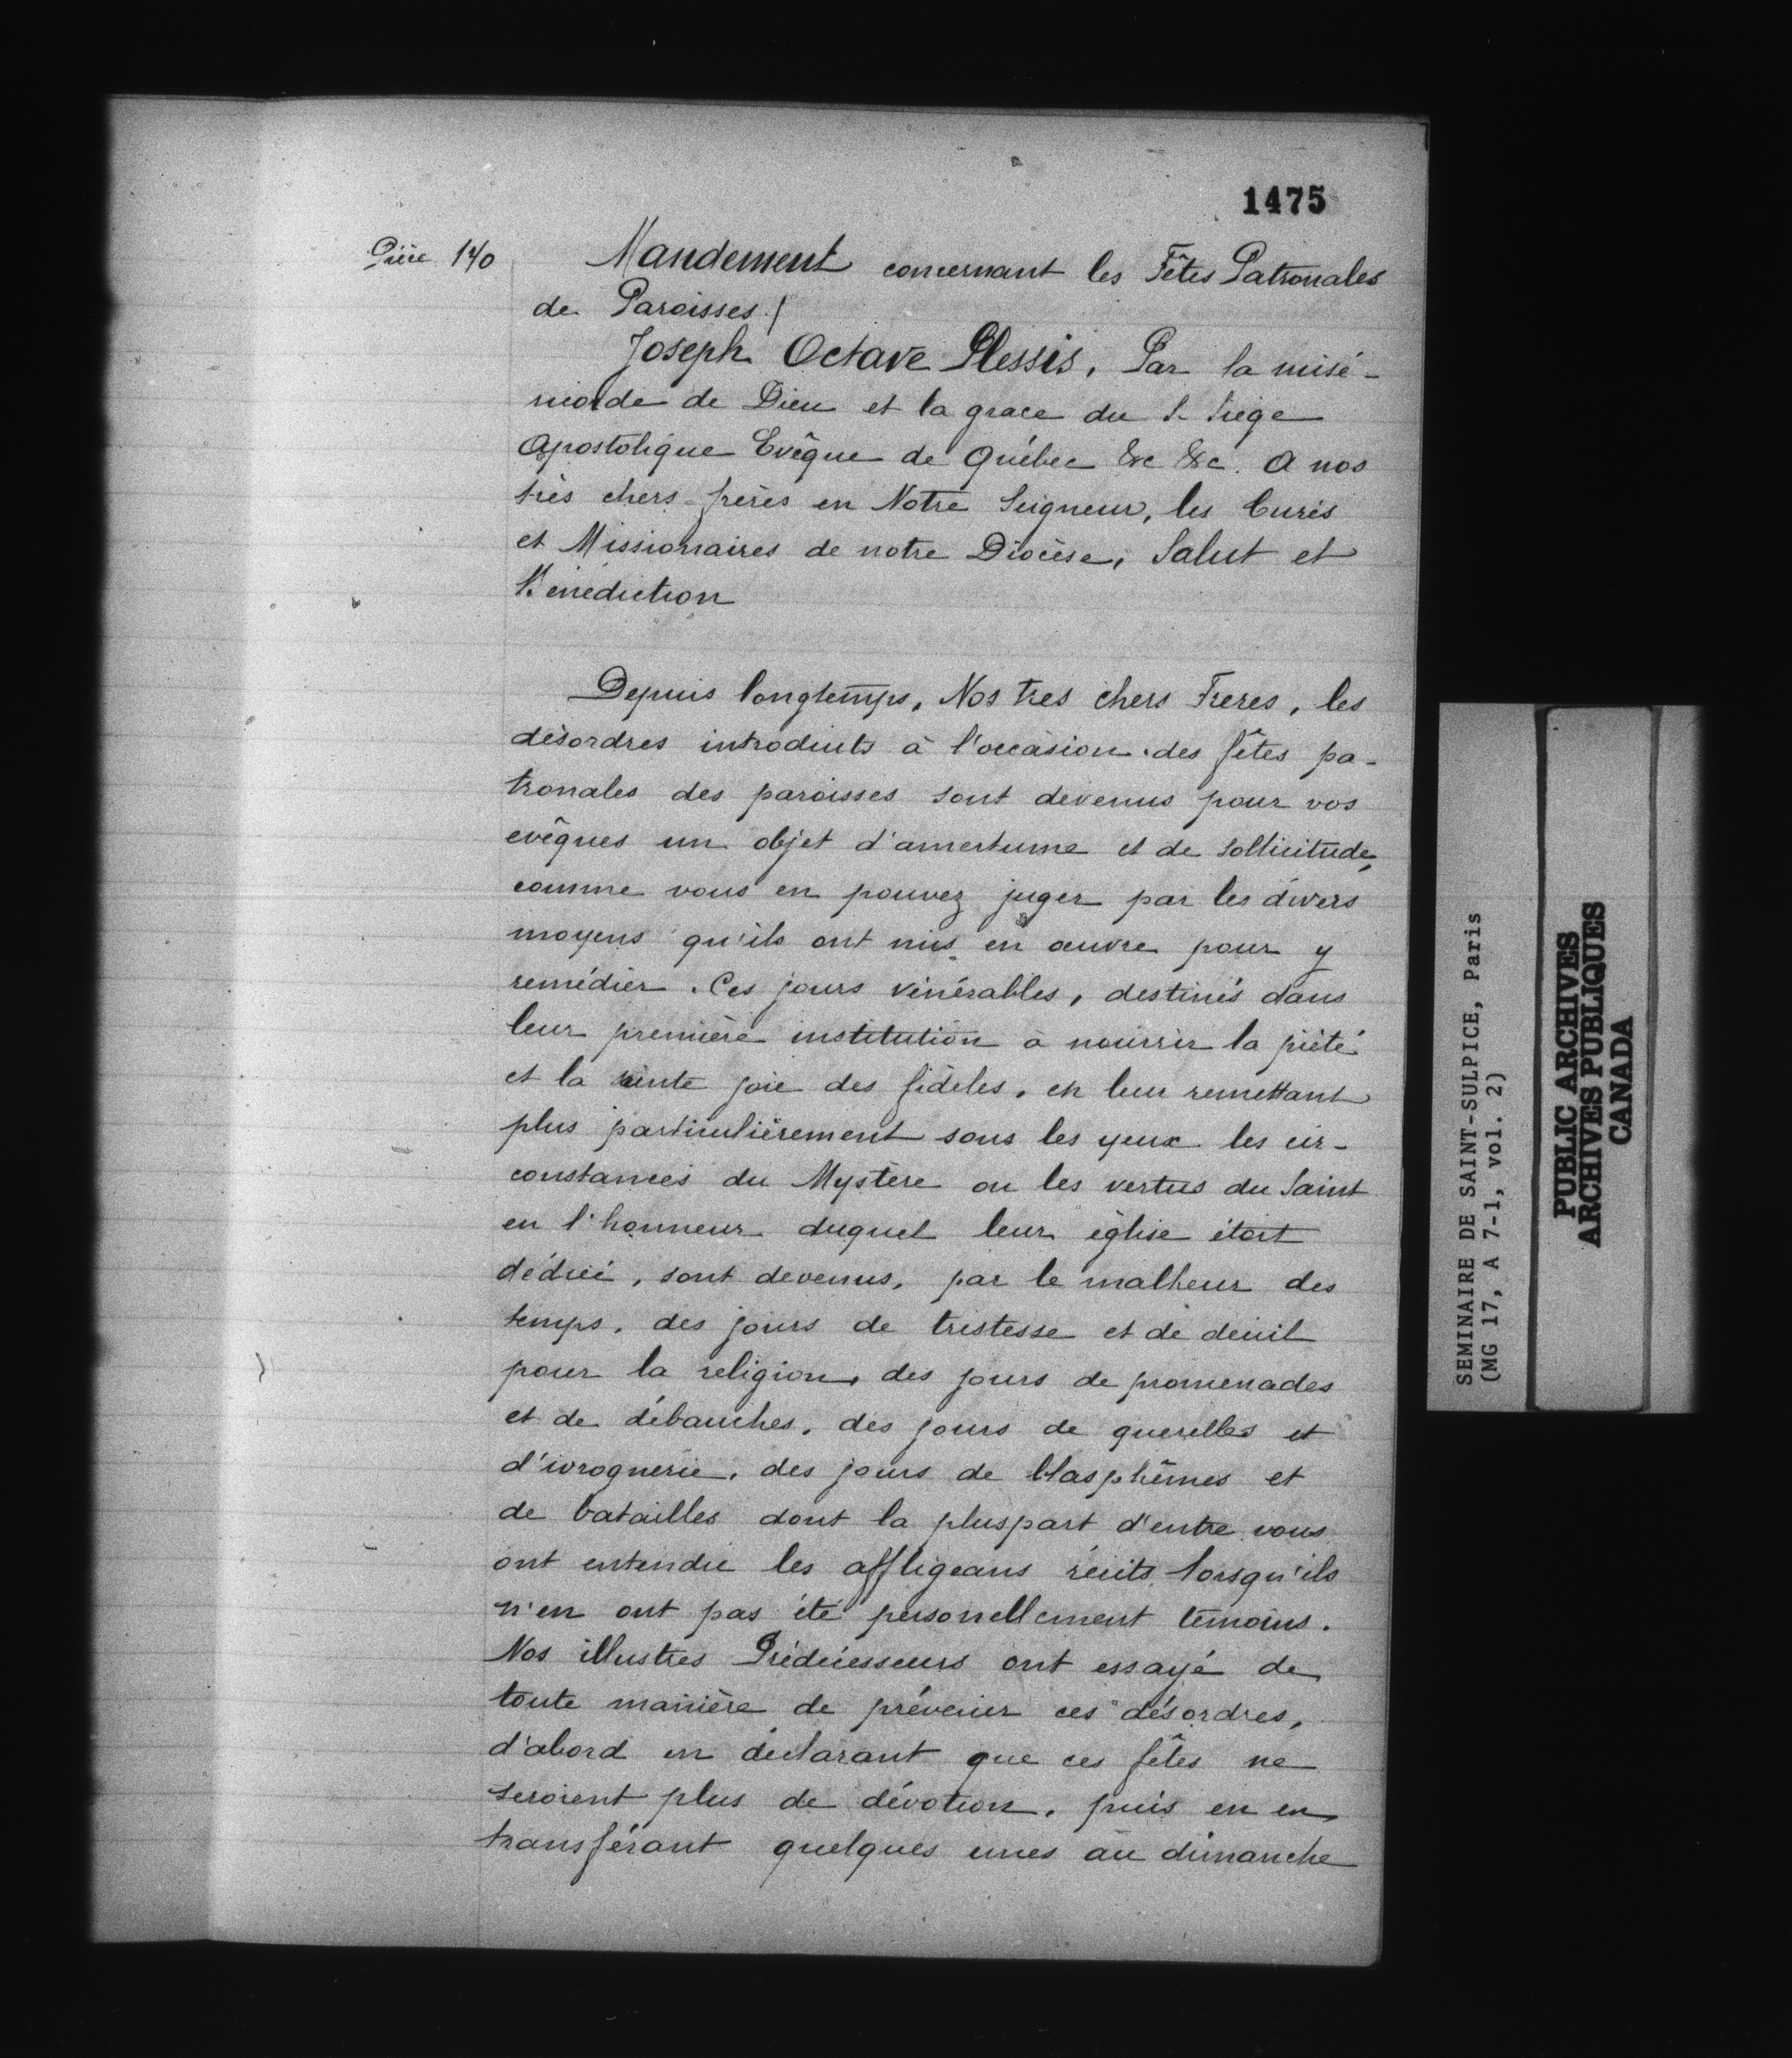 1475
Pièce 140
Mandement concernant les Fêtes Patronales
de Paroisses.
Joseph Octave Plessis, Par la misé-
ricorde de Dieu et la grace du S. Siège
Apostolique Evêque de Québec &c &c. A nos
très chers frères en Notre Seigneur, les Curés
et Missionaires de notre Diocèse, Salut et
Bénédiction
Depuis longtemps, Nos tres chers Freres, les
désordres introduits à l'occasion des fêtes pa-
tronales des paroisses sont devenus pour vos
evêques un objet d'amertume et de sollicitude,
comme vous en pouvez juger par les divers
moyens qu'ils ont mis en œuvre pour y
remédier. Ces jours vénérables, destinés dans
leur première institution à nourrir la piété
et la sainte joie des fidèles, en leur remettant
plus particulièrement sous les yeux les cir-
constances du Mystère ou les vertus du Saint
en l'honneur duquel leur église étoit
dédiée, sont devenus, par le malheur des
temps, des jours de tristesse et de deuil
pour la religion, des jours de promenades
et de débauches, des jours de querelles et
d'ivrognerie, des jours de blasphêmes et
de batailles dont la pluspart d'entre vous
ont entendu les affligeans récits lorsqu'ils
n'en ont pas été personellement témoins.
Nos illustres Prédécesseurs ont essayé de
toute manière de prévenir ces désordres,
d'abord en déclarant que ces fêtes ne
seroient plus de dévotion, puis en en
transférant quelques unes au dimanche
SEMINAIRE DE SAINT-SULPICE, Paris
(MG 17, A 7-1, vol. 2)
PUBLIC ARCHIVES
ARCHIVES PUBLIQUES
CANADA